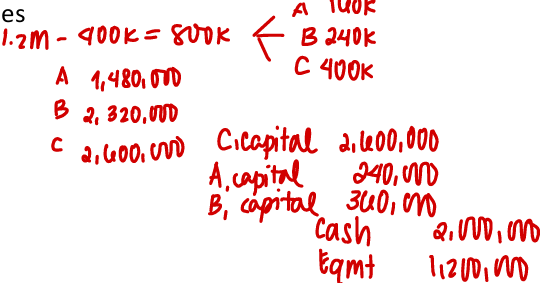 es
A 160K
1.2M - 400K = 800K B 240K
C 400K
A 1,480,000
B 2,320,000
C 2,600,000
C, capital 2,600,000
A, capital 240,000
B, capital 360,000
Cash 2,000,000
Eqmt 1,200,000